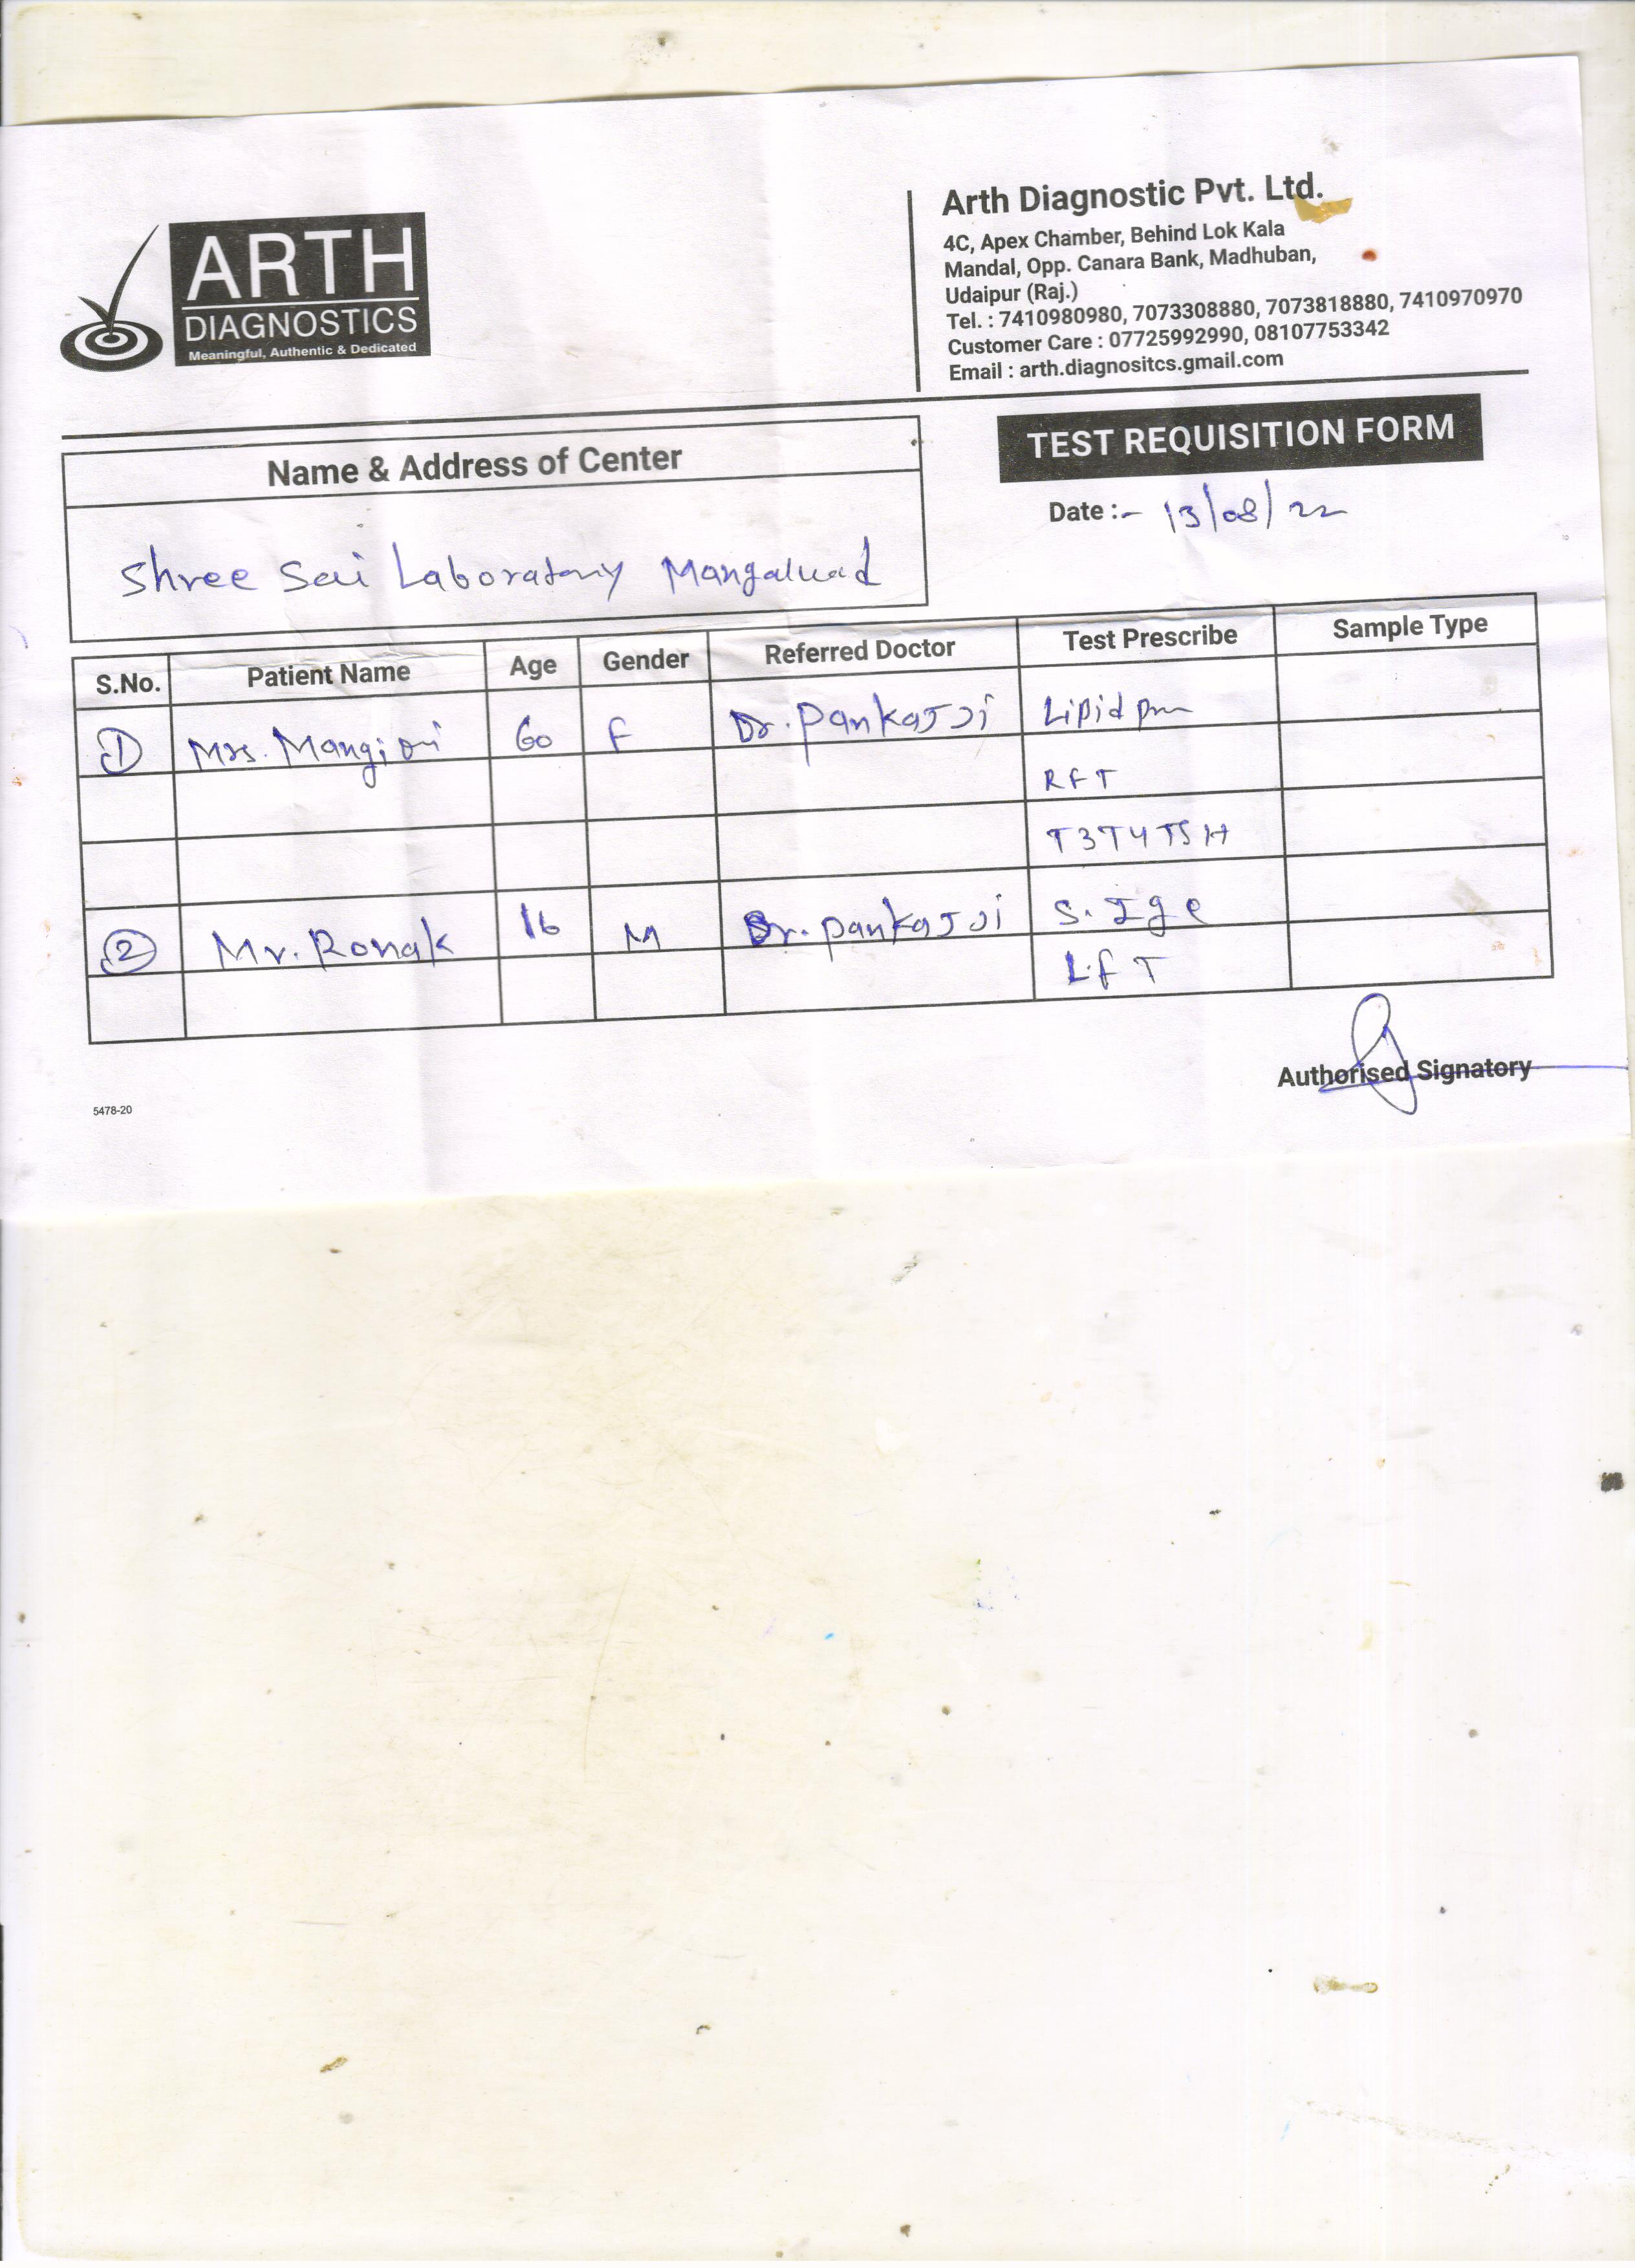 ARTH
DIAGNOSTICS
Meaningful, Authentic & Dedicated
Arth Diagnostic Pvt. Ltd.
4C, Apex Chamber, Behind Lok Kala
Mandal, Opp. Canara Bank, Madhuban,
Udaipur (Raj.)
Tel. : 7410980980, 7073308880, 7073818880, 7410970970
Customer Care : 07725992990, 08107753342
Email : arth.diagnositcs.gmail.com
TEST REQUISITION FORM
Date :- 13/08/22
Name & Address of Center
Shree Sai Laboratory
S.No. Patient Name Age Gender Referred Doctor Test Prescribe Sample Type
1 Mrs. 60 F Dr. Pankaj Ji Lipid
RFT
T3T4TSH
2 Mr. Ronak 16 M Dr. Pankaj Ji S. Ige
LFT
Authorised Signatory
5478-20